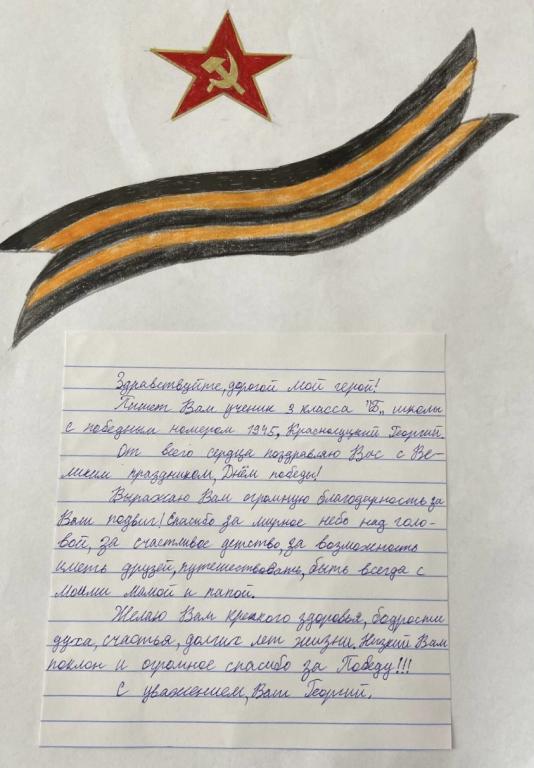 Здравствуйте, дорогой мой герой!
Пишет Вам ученик 3 класса "Б" школы
с победным номером 1945, Красносуцкий Георгий.
От всего сердца поздравляю Вас с Ве-
ликим праздником, Днём победы!
Выражаю Вам огромную благодарность за
Ваш подвиг! Спасибо за мирное небо над голо-
вой, за счастливое детство, за возможность
иметь друзей, путешествовать, быть всегда с
моими мамой и папой.
Желаю Вам крепкого здоровья, бодрости
духа, счастья, долгих лет жизни. Низкий Вам
поклон и огромное спасибо за Победу!!!
С уважением, Ваш Георгий.